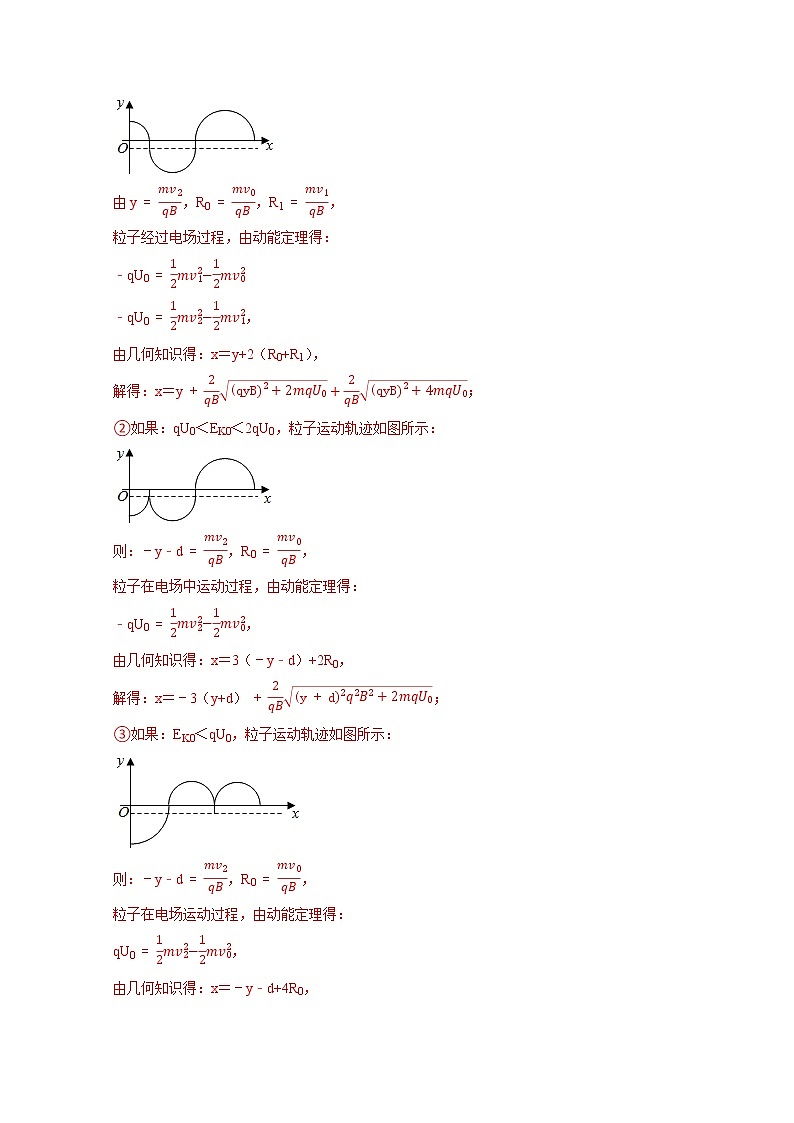 y
O
x
由 y = mv₂/qB，R₀ = mv₀/qB，R₁ = mv₁/qB，
粒子经过电场过程，由动能定理得：
﹣qU₀ = 1/2mv₁²−1/2mv₀²
﹣qU₀ = 1/2mv₂²−1/2mv₁²，
由几何知识得：x＝y+2（R₀+R₁），
解得：x＝y + 2/qB√((qyB)²+2mqU₀)+2/qB√((qyB)²+4mqU₀)；
②如果：qU₀＜E_K0＜2qU₀，粒子运动轨迹如图所示：
y
O
x
则：﹣y﹣d = mv₂/qB，R₀ = mv₀/qB，
粒子在电场中运动过程，由动能定理得：
﹣qU₀ = 1/2mv₂²−1/2mv₀²，
由几何知识得：x＝3（﹣y﹣d）+2R₀，
解得：x＝﹣3（y+d） + 2/qB√((y + d)²q²B²+2mqU₀)；
③如果：E_K0＜qU₀，粒子运动轨迹如图所示：
y
O
x
则：﹣y﹣d = mv₂/qB，R₀ = mv₀/qB，
粒子在电场运动过程，由动能定理得：
qU₀ = 1/2mv₂²−1/2mv₀²，
由几何知识得：x＝﹣y﹣d+4R₀，